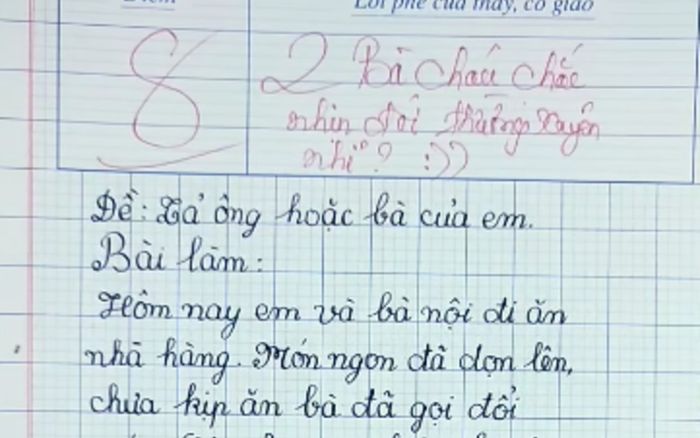 Lời phê của thầy, cô giáo
8
2 Bà cháu chắc
nhịn đói thường xuyên
nhỉ? :))
Đề: Tả ông hoặc bà của em.
Bài làm:
Hôm nay em và bà nội đi ăn
nhà hàng. Món ngon đã dọn lên,
chưa kịp ăn bà đã gọi đổi